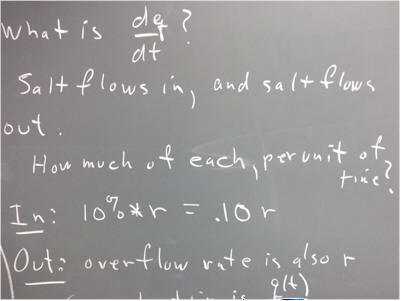 What is dq/dt?
Salt flows in, and salt flows
out.
How much of each, per unit of
time?
In: 10% * r = .10 r
Out: overflow rate is also r
q(t)